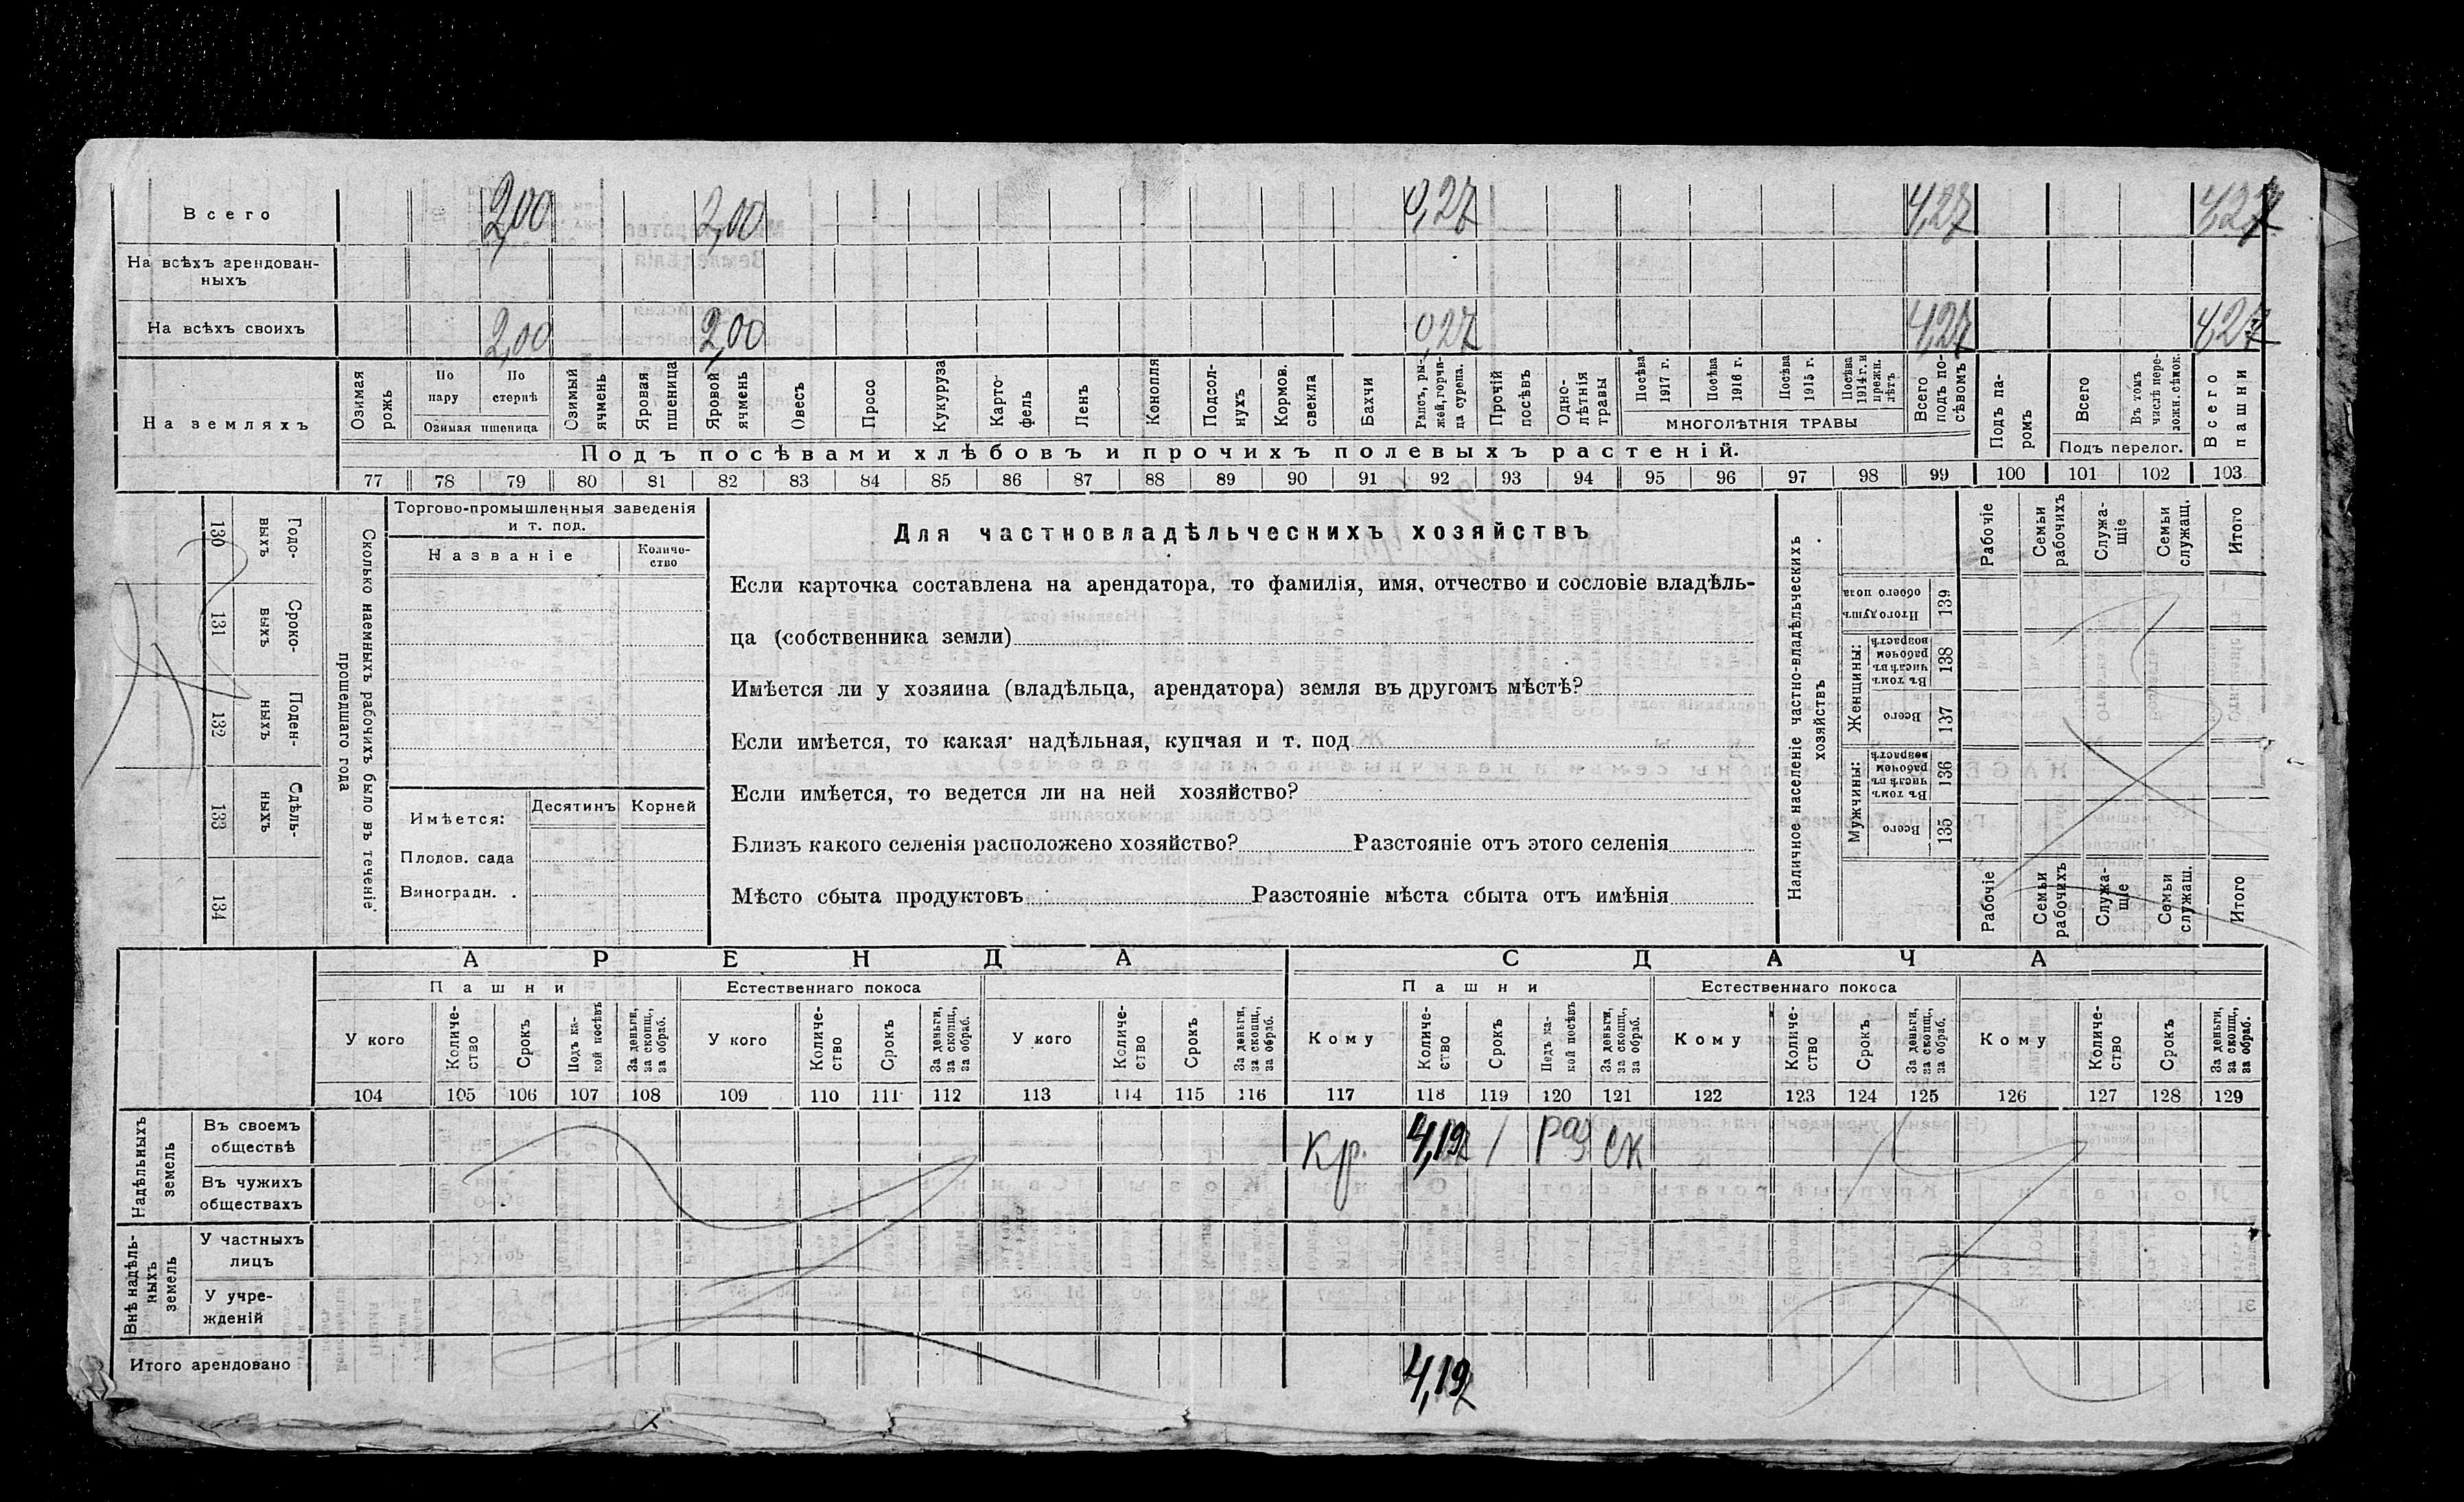 Всего 2,00 2,00 0,27 4,27 4,27
На всѣхъ арендован-
ныхъ
На всѣхъ своихъ 2,00 2,00 0,27 4,27 4,27
На земляхъ
Озимая рожь
По пару
По стернѣ
Озимая пшеница
Озимый ячмень
Яровая пшеница
Яровой ячмень
Овесъ
Просо
Кукуруза
Карто-
фель
Ленъ
Конопля
Подсол-
нухъ
Кормов. свекла
Бахчи
Рапсъ, ры-
жей, горчи-
ца сурепа.
Прочій посѣвъ
Одно-
лѣтнія травы
Посѣва 1917 г.
Посѣва 1916 г.
Посѣва 1915 г.
Посѣва 1914 г. и прежн. лѣтъ
МНОГОЛѢТНІЯ ТРАВЫ
Всего подъ по-
сѣвомъ
Подъ па-
ромъ
Всего
Въ томъ числѣ пере-
ложн. сѣнок.
Подъ перелог.
Всего пашни
Подъ посѣвами хлѣбовъ и прочихъ полевыхъ растеній.
77 78 79 80 81 82 83 84 85 86 87 88 89 90 91 92 93 94 95 96 97 98 99 100 101 102 103
Сколько наемныхъ рабочихъ было въ теченіе
прошедшаго года
Годо-
выхъ
130
Сроко-
выхъ
131
Поден-
ныхъ
132
Сдѣль-
ныхъ
133
134
Торгово-промышленныя заведенія
и т. под.
Названіе
Количе-
ство
Имѣется:
Десятинъ
Корней
Плодов. сада
Виноградн. .
Для частновладѣльческихъ хозяйствъ
Если карточка составлена на арендатора, то фамилія, имя, отчество и сословіе владѣль-
ца (собственника земли)
Имѣется ли у хозяина (владѣльца, арендатора) земля въ другомъ мѣстѣ?
Если имѣется, то какая надѣльная, купчая и т. под
Если имѣется, то ведется ли на ней хозяйство?
Близъ какого селенія расположено хозяйство? Разстояніе отъ этого селенія
Мѣсто сбыта продуктовъ Разстояніе мѣста сбыта отъ имѣнія
Наличное населеніе частно-владѣльческихъ
хозяйствъ
Рабочіе
Семьи рабочихъ
Служа-
щіе
Семьи служащ.
Итого
Итого душъ обоего пола
139
Женщины:
Въ томъ числѣ въ рабочем возрастѣ
138
Всего
137
Мужчины:
Въ томъ числѣ въ рабочем возрастѣ
136
Всего
135
Рабочіе
Семьи рабочихъ
Служа-
щіе
Семьи служащ.
Итого
АРЕНДА
СДАЧА
Пашни
Естественнаго покоса
Пашни
Естественнаго покоса
У кого
Количе-
ство
Срокъ
Подъ ка-
кой посѣвъ
За деньги, за скопщ., за обраб.
У кого
Количе-
ство
Срокъ
За деньги, за скопщ., за обраб.
У кого
Количе-
ство
Срокъ
За деньги, за скопщ., за обраб.
Кому
Количе-
ство
Срокъ
Подъ ка-
кой посѣвъ
За деньги, за скопщ., за обраб.
Кому
Количе-
ство
Срокъ
За деньги, за скопщ., за обраб.
Кому
Количе-
ство
Срокъ
За деньги, за скопщ., за обраб.
104 105 106 107 108 109 110 111 112 113 114 115 116 117 118 119 120 121 122 123 124 125 126 127 128 129
Надѣльныхъ
земель
Въ своемъ
обществѣ
Кр. 1 раз ск
Въ чужихъ
обществахъ
Внѣ надѣль-
ныхъ
земель
У частныхъ
лицъ
У учре-
жденій
Итого арендовано